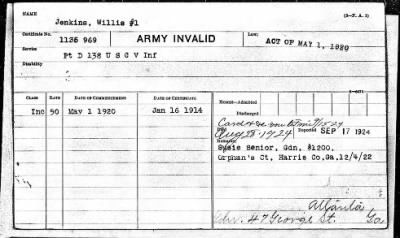 NAME
(3-F.A.2)
Jenkins, Willis #1
Certificate No.
1136 969
ARMY INVALID
Law:
ACT OF MAY 1, 1920
Service
Pt D 138 U S C V Inf
Disability
CLASS RATE DATE OF COMMENCEMENT DATE OF CERTIFICATE
Home—Admitted
Discharged
Inc 50 May 1 1920 Jan 16 1914
Died Aug 28, 1924 Reported SEP 17 1924
Susie Senior, Gdn, $1200.
Orphan's Ct, Harris Co, Ga, 12/4/22
Atlanta
47 George St. Ga